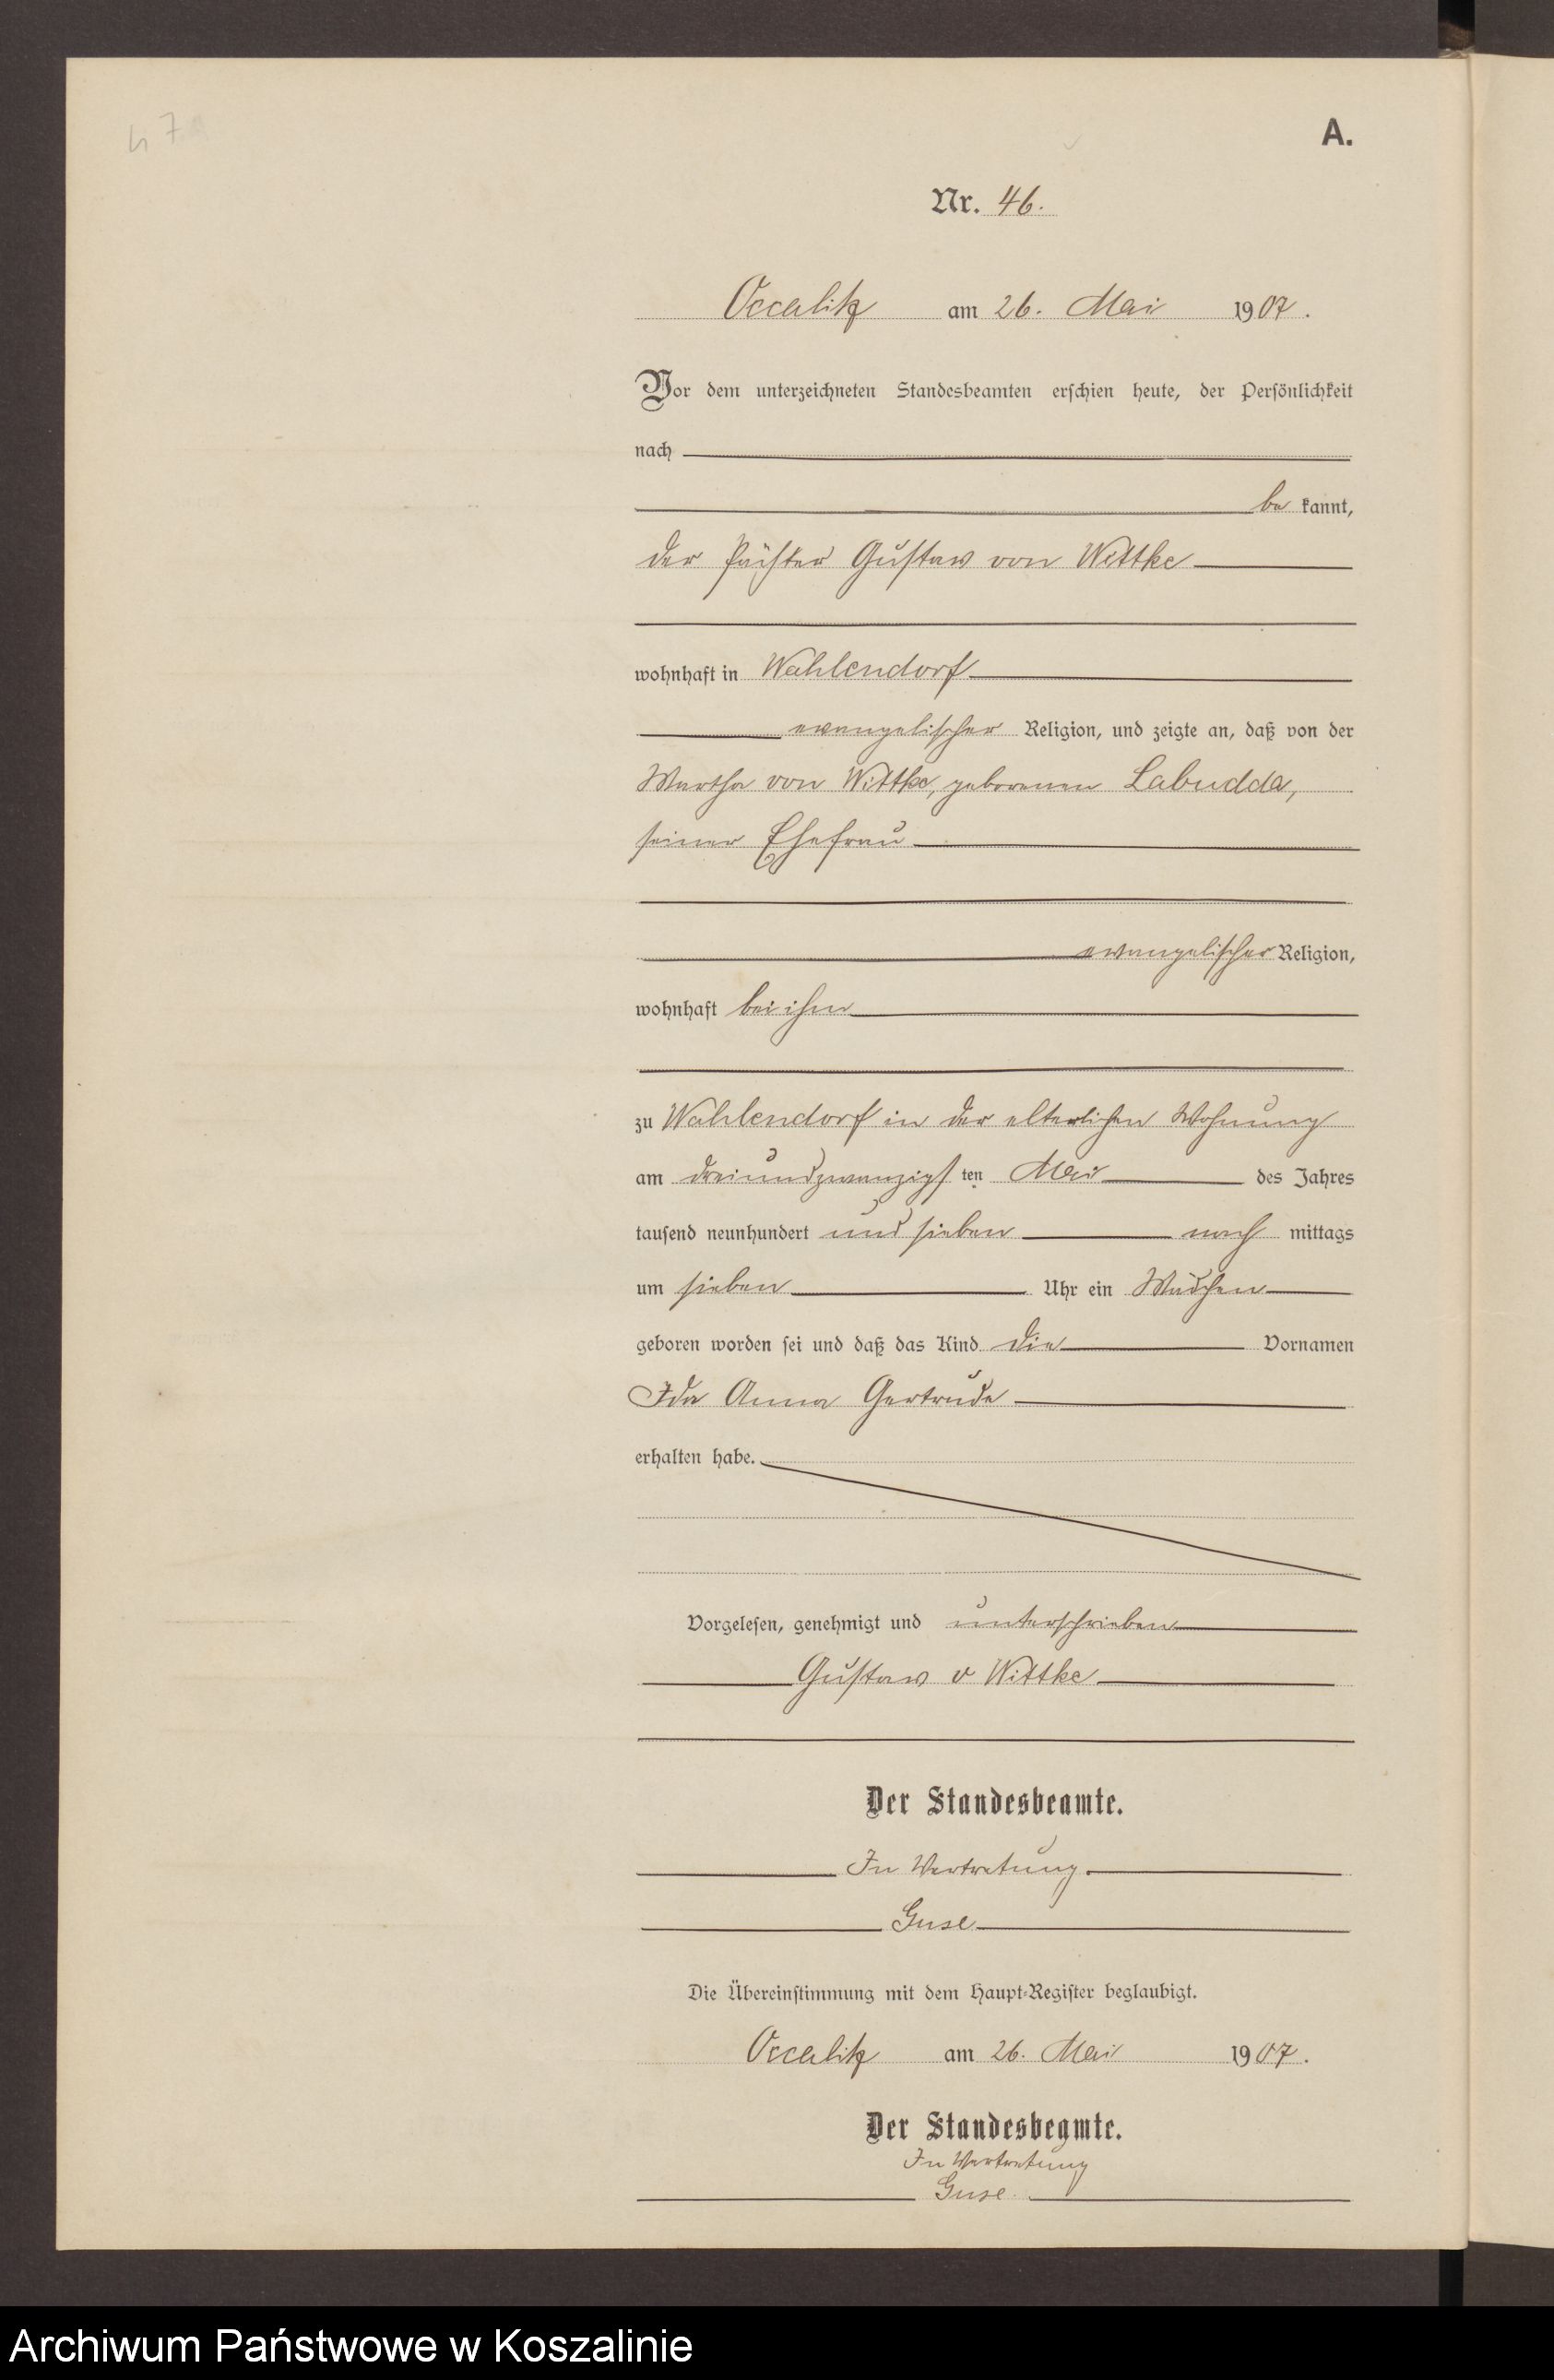 47a
A.
Nr. 46.
Occalitz am 26. Mai 1907.
Vor dem unterzeichneten Standesbeamten erschien heute, der Persönlichkeit
nach
be kannt,
der Pächter Gustav von Wittke
wohnhaft in Wahlendorf
evangelischer Religion, und zeigte an, daß von der
Martha von Wittke, geborenen Labudda,
seiner Ehefrau
evangelischer Religion,
wohnhaft bei ihm
zu Wahlendorf in der elterlichen Wohnung
am dreiundzwanzigsten Mai des Jahres
tausend neunhundert und sieben nach mittags
um sieben Uhr ein Mädchen
geboren worden sei und daß das Kind die Vornamen
Ida Anna Gertrude
erhalten habe.
Vorgelesen, genehmigt und unterschrieben
Gustav v Wittke
Der Standesbeamte.
In Vertretung.
Guse
Die Übereinstimmung mit dem Haupt-Register beglaubigt.
Occalitz am 26. Mai 1907.
Der Standesbeamte.
In Vertretung
Guse.
Archiwum Państwowe w Koszalinie